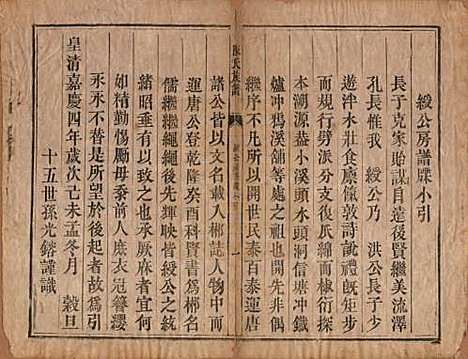 綬公房譜牒小引
長子克家貽謀自遠後賢繼美流澤
孔長惟我　綬公乃　洪公長子少
遊泮水壯食廩餼敦詩說禮既以一
而規行矩步析薪分支綿而棣衍探
本溯源盍小溪水頭洞信唐冲鐵
爐冲馮溪舖等處之祖也開先非偶
繼序不凡所以開世民泰百泰運唐
諸公皆以文名載入郴誌人物中而
運唐公登乾隆癸酉科賢書為郴名
儒繼繼繩繩後先輝映皆綬公之統
緒昭垂有以致此也承厥麻者宜何
如精勤惕厲毋忝前人庶衣冠簪纓
永永不替是所望於後起者故為引
皇清嘉慶四年歲次己未孟冬月　穀旦
十五世孫光鎔謹識